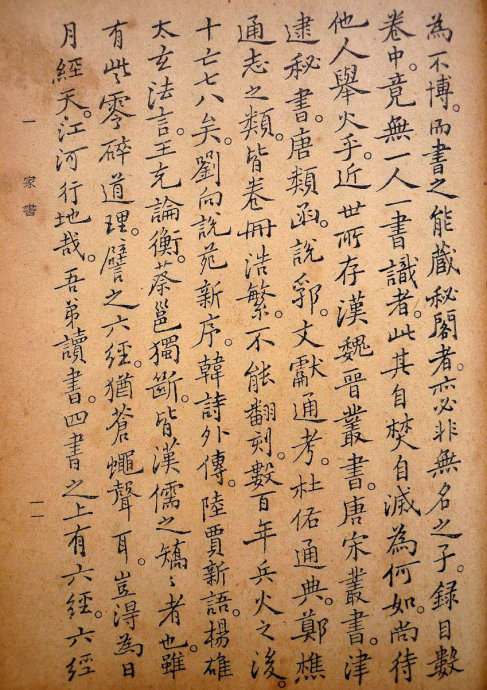 為不博。而書之能藏秘閣者。亦必非無名之子。錄目數
卷中。竟無一人一書識者。此其自焚自滅為何如。尚待
他人舉火乎。近世所存漢魏晉叢書。唐宋叢書。津
逮秘書。唐類函。說郛。文獻通考。杜佑通典。鄭樵
通志之類。皆卷冊浩繁。不能翻刻。數百年兵火之後。
十亡七八矣。劉向說苑新序。韓詩外傳。陸賈新語。楊雄
太玄法言。王充論衡。蔡邕獨斷。皆漢儒之矯〻者也。雖
有些零碎道理。譬之六經。猶蒼蠅聲耳。豈得為日
月經天。江河行地哉。吾弟讀書。四書之上有六經。六經
一 家書
一一